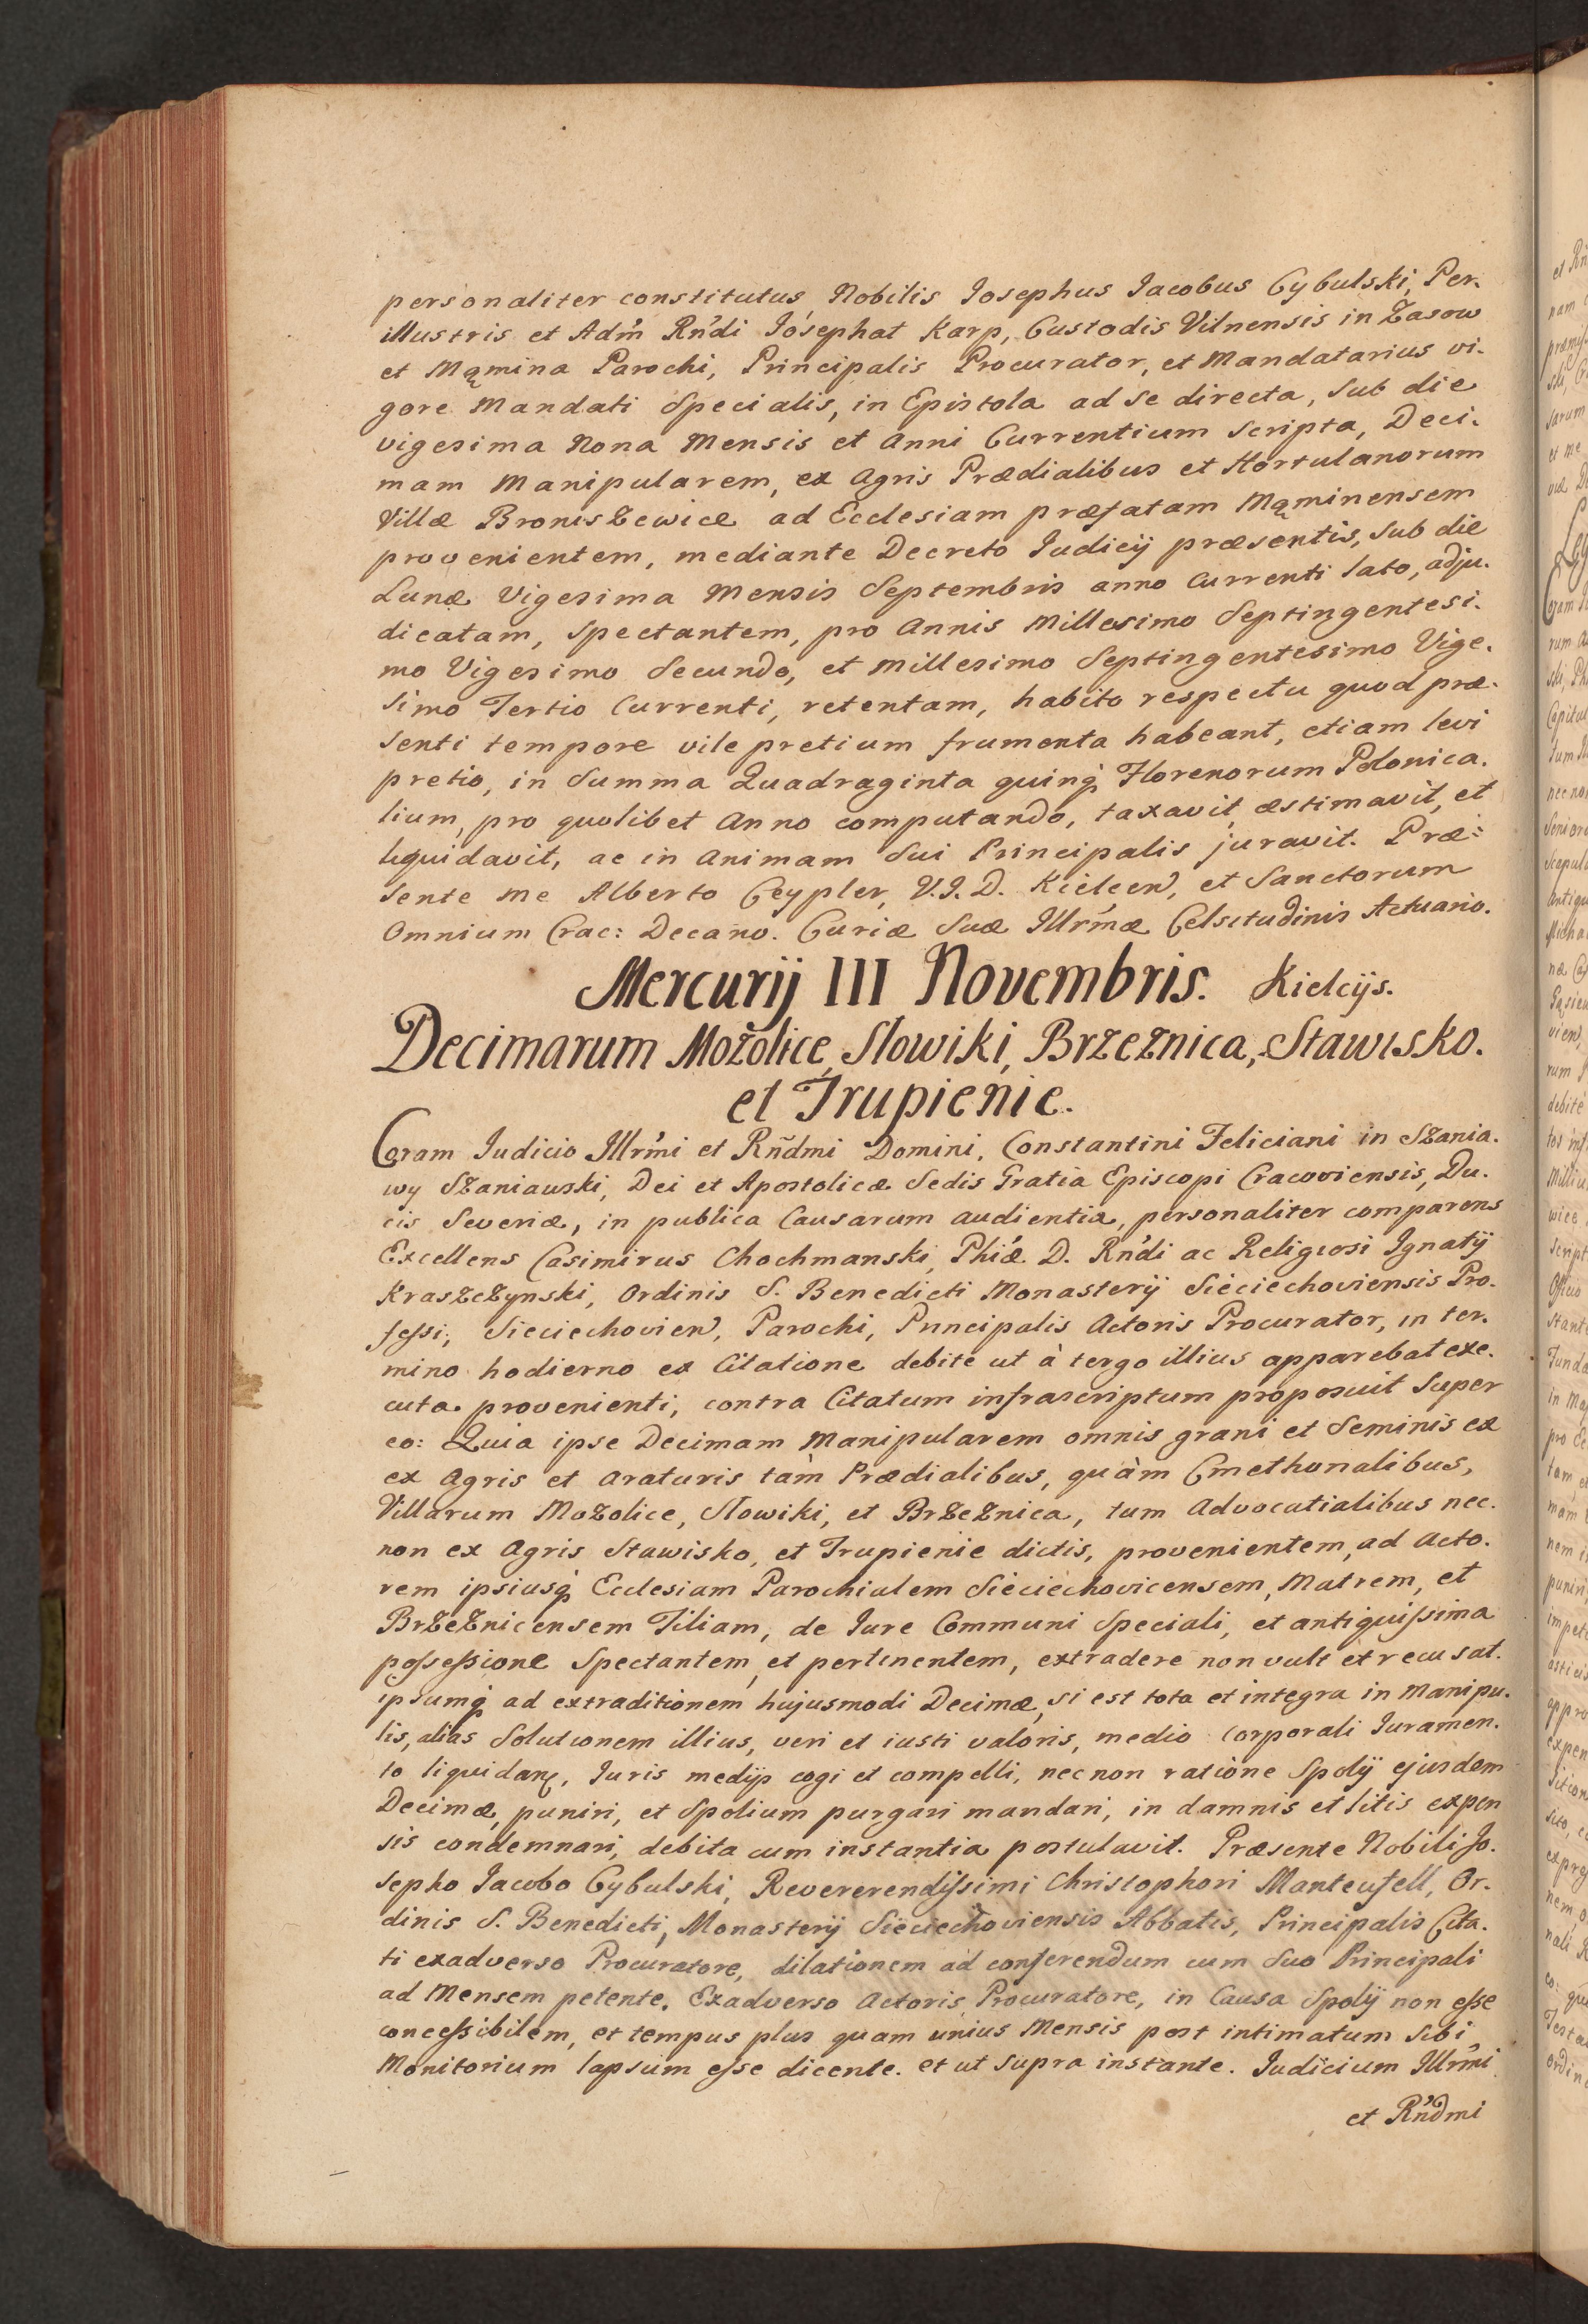 personaliter constitutus Nobilis Iosephus Iacobus Cybulski, Per-
illustris et Adm̃ Rñdi Iósephat Karp, Custodis Vilnensis in Zasow
et Mąmina Parochi, Principalis Procurator, et Mandatarius vi-
gore Mandati Specialis, in Epistola ad se directa, sub die
vigesima Nona Mensis et Anni Currentium scripta, Deci-
mam Manipularem, ex Agris Prædialibus et Hortulanorum
Villæ Broniszewice ad Ecclesiam præfatam Mąminensem
provenientem, mediante Decreto Iudicij præsentis, sub die
Lunæ Vigesima Mensis Septembris anno currenti lato, adju-
dicatam, spectantem, pro Annis Millesimo Septingentesi-
mo Vigesimo Secundo, et Millesimo Septingentesimo Vige-
simo Tertio Currenti, retentam, habito respectu quod præ-
senti tempore vile pretium frumenta habeant, etiam levi
pretio, in Summa Quadraginta quinq̓ Florenorum Polonica-
lium, pro quolibet Anno computando, taxavit, æstimavit, et
liquidavit, ac in Animam Sui Principalis juravit. Præ-
sente me Alberto Ceypler, V.I.D. Kielcen, et Sanctorum
Omnium Crac: Decano. Curiæ Suæ Illrm̃æ Celsitudinis Actuario.
Mercurij III Novembris. Kielcijs.
Decimarum Możolice, Slowiki, Brzeznica, Stawisko.
et Trupienie.
Coram Iudicio Illrm̃i et Rñdmi Domini, Constantini Feliciani in Szania-
wy Szaniawski, Dei et Apostolicæ Sedis Gratia Episcopi Cracoviensis, Du-
cis Severiæ, in publica Causarum audientia, personaliter comparens
Excellens Casimirus Chochmanski, Phiæ D. Rñdi ac Religiosi Ignatij
Kraszczynski, Ordinis S. Benedicti Monasterij Sieciechoviensis Pro-
fessi, Sieciechovien, Parochi, Principalis Actoris Procurator, in ter-
mino hodierno ex Citatione debite ut à tergo illius apparebat exe-
cuta provenienti, contra Citatum infrascriptum proposuit super
eo: Quia ipse Decimam Manipularem omnis grani et Seminis ex
ex Agris et Araturis tàm Prædialibus, quàm Cmethonalibus,
Villarum Mozolice, Slowiki, et Brzeznica, tum Advocatialibus nec-
non ex Agris Stawisko, et Trupienie dictis, provenientem, ad Acto-
rem ipsiusq̓ Ecclesiam Parochialem Sieciechovicensem, Matrem, et
Brzeznicensem Filiam, de Iure Communi Speciali, et antiquissima
possessione Spectantem, et pertinentem, extradere non vult et recusat.
ipsumq̓ ad extraditionem hujusmodi Decimæ, si est tota et integra in Manipu-
lis, alias Solutionem illius, veri et iusti valoris, medio corporali Iuramen-
to liquidanꝭ, Iuris medijs cogi et compelli, necnon ratione Spolij ejusdem
Decimæ, puniri, et Spolium purgari mandari, in damnis et litis expen
sis condemnari, debita cum instantia postulavit. Præsente Nobili Jo-
sepho Iacobo Cybulski, Revererendissimi Christophori Manteufell, Or-
dinis S. Benedicti, Monasterij Sieciechoviensis Abbatis, Principalis Cita-
ti exadverso Procuratore, dilationem ad conferendum cum Suo Principali
ad Mensem petente. Exadverso Actoris Procuratore, in Causa Spolij non esse
concessibilem, et tempus plus quam unius Mensis post intimatum sibi,
Monitorium lapsum esse dicente. et ut supra instante. Iudicium Illrm̃i
et Rñdmi